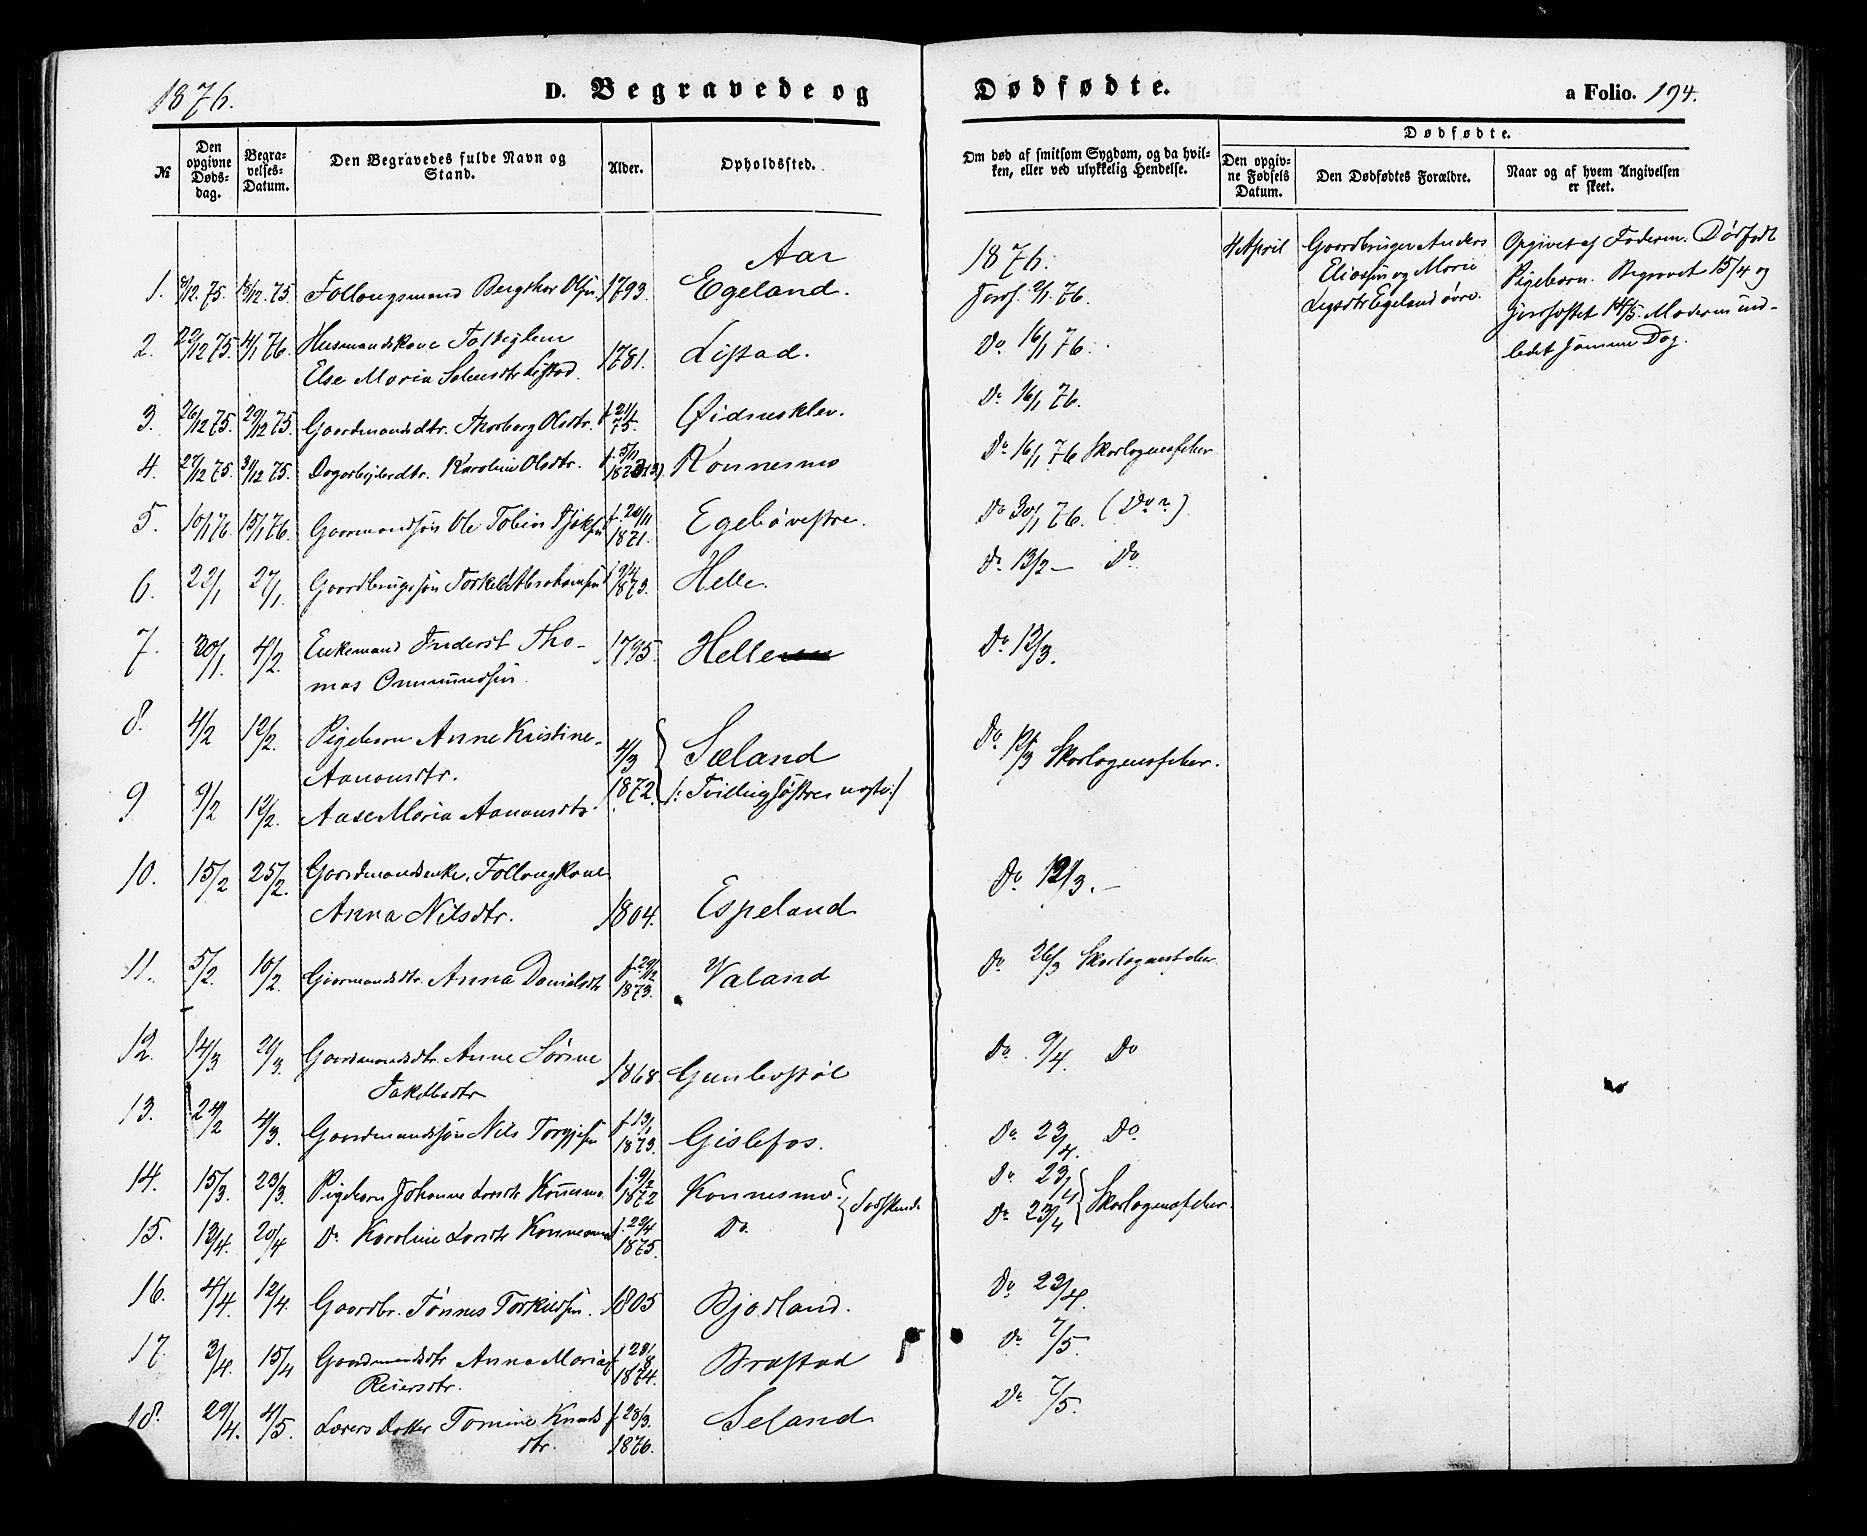 1876.
D. Begravede og
Dødfødte.
a Folio. 194.
№
Den opgivne Døds-dag.
Begra-velses-Datum.
Den Begravedes fulde Navn og Stand.
Alder.
Opholdssted.
Om død af smitsom Sygdom, og da hvil-
ken, eller ved ulykkelig Hendelse.
Dødfødte.
Den opgiv-ne Fødsels Datum.
Den Dødfødtes Forældre.
Naar og af hvem Angivelsen er skeet.
Aar
1876.
1. 8/12.75. 16/12.75. Follougsmand Bergthor Olsen 1793. Egeland. Jordf. 2/1.76.
2. 22/12 75. 4/1 76. Husmandskone
Else Maria Listad. 1781. Listad. Do 16/1 76.
3. 26/12 75. 29/12 75. Gaardmandsdtr. Thorborg Olsdtr. f. 21/1 75. Øidnesklev. Do 16/1 76.
4. 27/12 75. 31/12 75. Dagarbeiderdtr. Karoline Olsdtr. f. 5/11 Konnesmo Do 16/1 76 Skarlagensfeber
5. 10/1 76. 15/1 76. Gaarmandssøn Ole Tobias f. 20/11 1871. Egebø vestre. Do 30/1 76. (Do)
6. 22/1 27/1. Gaardbrugssøn Torkel Abrahamsen f 9/4 1873. Helle. Do 13/2 — Do
7. 30/1. 4/2. Enkemand Inderst Tho-
mas Ommundsen. 1795. Helle Do 12/3.
8. 4/2 12/2. Pigebarn Anne Kristine
Aanonsdtr. 4/3 1872. Sæland Do 12/3 Skarlagensfeber.
9 9/2 12/2. Aase Maria Aanonsdtr /: Tvillingsøstre
10. 15/2 25/2. Gaardmandsenke, Follougkone
Anna Nilsdtr. 1804. Espeland Do 12/3. —
11. 5/2. 10/2. Gaarmandsdtr. Anna Danielsdtr f. 29/12 1873. Valand Do 26/3 Skarlagensfeber
12. 14/3 20/3. Gaardmandsdtr. Anne Sørine
Jakobsdtr 1868. Gunlestøl Do 9/4. Do
13. 24/2 4/3. Gaardmandssøn Nils Torgjesen f. 13/1 1873. Gislefos. Do 23/4. Do
14. 15/3. 23/3. Pigebarn Johanne Larsdtr Konnesmo f. 9/2 1872 Konnesmo Do 23/4 Skarlagensfeber.
15. 13/4. 20/4 Do Karoline Larsdtr Konnesmo f. 29/4 1875. Do. Søskende Do 23/4
16. 4/4. 12/4. Gaardbr. Tønnes Torkildsen. 1805 Bjorland. Do 23/4.
17. 3/4. 15/4 Gaardmandsdtr Anna Maria
Reiersdtr. f. 28/8 1874. Brastad Do 7/5.
18. 29/4. 4/5. Lærers Datter Tomine Knuds
dtr. f. 28/3. 1876. Seland Do 7/5.
4 April
Gaardbruger Anders
Eliassen og Marie
Egeland øvre.
Opgivet af Faderen. Dødfødt
Pigebarn. Begravet 15/4 og
jordfæstet 14/5. Moderen ind-
ledet samme Dag.